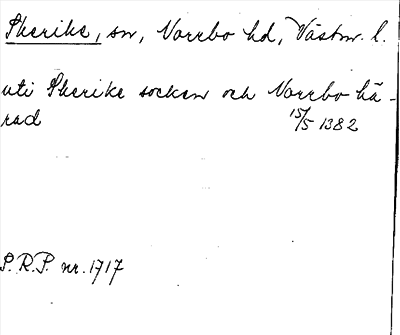 Skerike, sn, Norrbo hd, Västm. l.
uti Skerike socken och Norrbo hä-
rad 15/5 1382
S.R.P. nr. 1717